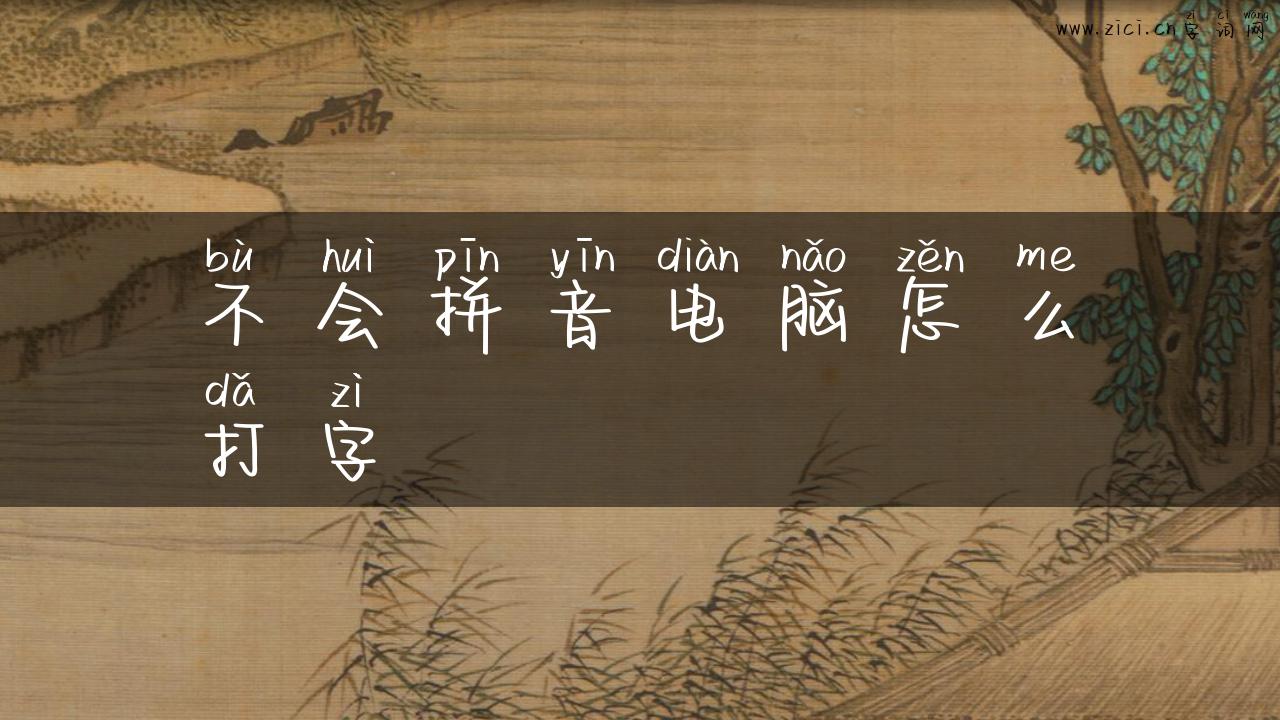 zì cí wǎng
www.zici.cn字词网
bù huì pīn yīn diàn nǎo zěn me
不会拼音电脑怎么
dǎ zì
打字